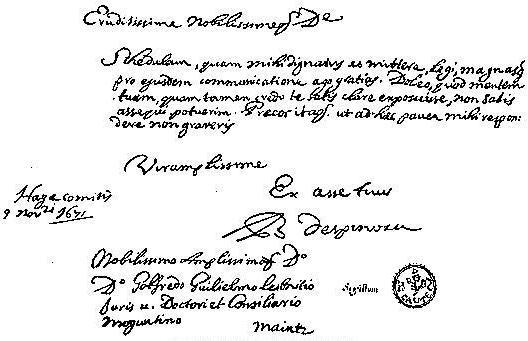 Eruditissime Nobilissimeq; De
Schedulam, quam mihi dignatus es mittere, legi, magnasq
pro ejusdem communicatione ago gratias. Doleo, quod mentem
tuam, quam tamen credo te satis clare exposuisse, non satis
assequi potuerim. Precor itaq; ut ad hæc pauca mihi respon-
dere non graveris
Vir amplissime
Ex asse tuus
B despinosa
Hagæ comitis
9 Novri 1671
Nobilissimo Amplissimoq; Do
Do Gotfredo Guilielmo Leibnitio
Juris u. Doctori et Consiliario
Moguntino
Maintz
Sigillum